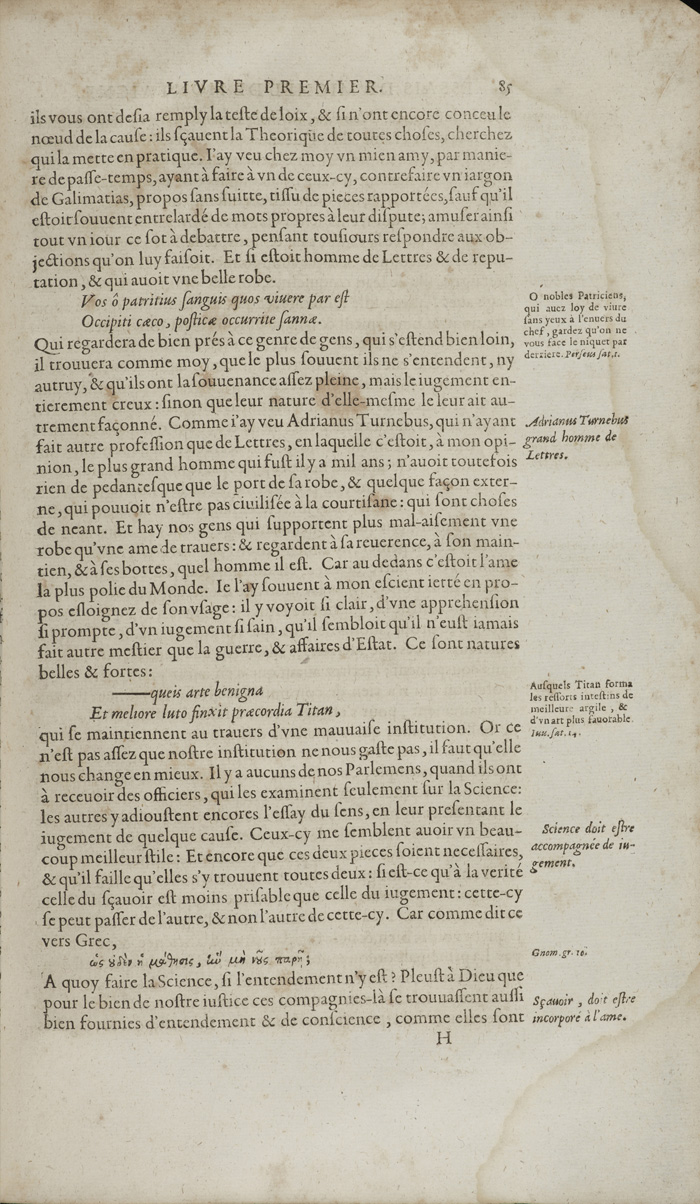 LIVRE PREMIER. 85
ils vous ont desia remply la teste de loix, & si n'ont encore conceu le
nœud de la cause: ils sçauent la Theorique de toutes choses, cherchez
qui la mette en pratique. I'ay veu chez moy vn mien amy, par manie-
re de passe-temps, ayant à faire à vn de ceux-cy, contrefaire vn iargon
de Galimatias, propos sans suitte, tissu de pieces rapportées, sauf qu'il
estoit souuent entrelardé de mots propres à leur dispute; amuser ainsi
tout vn iour ce sot à debattre, pensant tousiours respondre aux ob-
jections qu'on luy faisoit. Et si estoit homme de Lettres & de repu-
tation, & qui auoit vne belle robe.
Vos ô patritius sanguis quos viuere par est
Occipiti cæco, posticæ occurrite sannæ.
O nobles Patriciens,
qui auez loy de viure
sans yeux à l'enuers du
chef, gardez qu'on ne
vous face le niquet par
derriere. Perseus sat. 1.
Qui regardera de bien prés à ce genre de gens, qui s'estend bien loin,
il trouuera comme moy, que le plus souuent ils ne s'entendent, ny
autruy, & qu'ils ont la souuenance assez pleine, mais le iugement en-
tierement creux: sinon que leur nature d'elle-mesme le leur ait au-
trement façonné. Comme i'ay veu Adrianus Turnebus, qui n'ayant
fait autre profession que de Lettres, en laquelle c'estoit, à mon opi-
nion, le plus grand homme qui fust il y a mil ans; n'auoit toutefois
rien de pedantesque que le port de sa robe, & quelque façon exter-
ne, qui pouuoit n'estre pas ciuilisée à la courtisane: qui sont choses
de neant. Et hay nos gens qui supportent plus mal-aisement vne
robe qu'vne ame de trauers: & regardent à sa reuerence, à son main-
tien, & à ses bottes, quel homme il est. Car au dedans c'estoit l'ame
la plus polie du Monde. Ie l'ay souuent à mon escient ietté en pro-
pos esloignez de son vsage: il y voyoit si clair, d'vne apprehension
si prompte, d'vn iugement si sain, qu'il sembloit qu'il n'eust iamais
fait autre mestier que la guerre, & affaires d'Estat. Ce sont natures
belles & fortes:
Adrianus Turnebus
grand homme de
Lettres.
——queis arte benigna
Et meliore luto finxit præcordia Titan,
Ausquels Titan forma
les ressorts intestins de
meilleure argile, &
d'vn art plus fauorable.
Iuu. sat. 14.
qui se maintiennent au trauers d'vne mauuaise institution. Or ce
n'est pas assez que nostre institution ne nous gaste pas, il faut qu'elle
nous change en mieux. Il y a aucuns de nos Parlemens, quand ils ont
à receuoir des officiers, qui les examinent seulement sur la Science:
les autres y adioustent encores l'essay du sens, en leur presentant le
iugement de quelque cause. Ceux-cy me semblent auoir vn beau-
coup meilleur stile: Et encore que ces deux pieces soient necessaires,
& qu'il faille qu'elles s'y trouuent toutes deux: si est-ce qu'à la verité
celle du sçauoir est moins prisable que celle du iugement: cette-cy
se peut passer de l'autre, & non l'autre de cette-cy. Car comme dit ce
vers Grec,
Science doit estre
accompagnée de iu-
gement.
ὡς οὐδὲν ἡ μάθησις, ἢν μὴ νοῦς παρῇ;
Gnom. gr. 16.
A quoy faire la Science, si l'entendement n'y est? Pleust à Dieu que
pour le bien de nostre iustice ces compagnies-là se trouuassent aussi
bien fournies d'entendement & de conscience, comme elles sont
Sçauoir, doit estre
incorporé à l'ame.
H